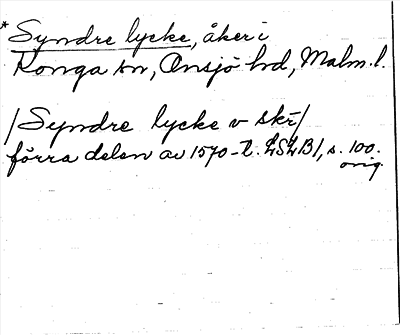 *Syndre lycke, åker i
Konga sn, Onsjö hd, Malm. l.
/Syndre lycke v skr/
förra delen av 1570-t. LSLB1, s. 100.
orig.